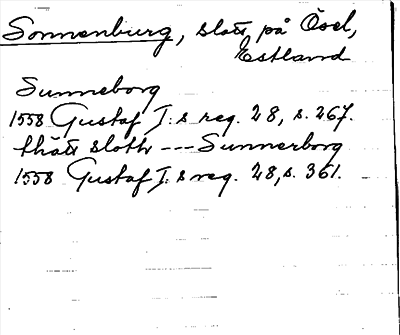 Sonnenburg, slott på Ösel,
Estland
Sunneborg
1558 Gustaf I:s reg. 28, s. 267.
thätt sloth --- Sunnerborg
1558 Gustaf I:s reg. 28, s. 361.